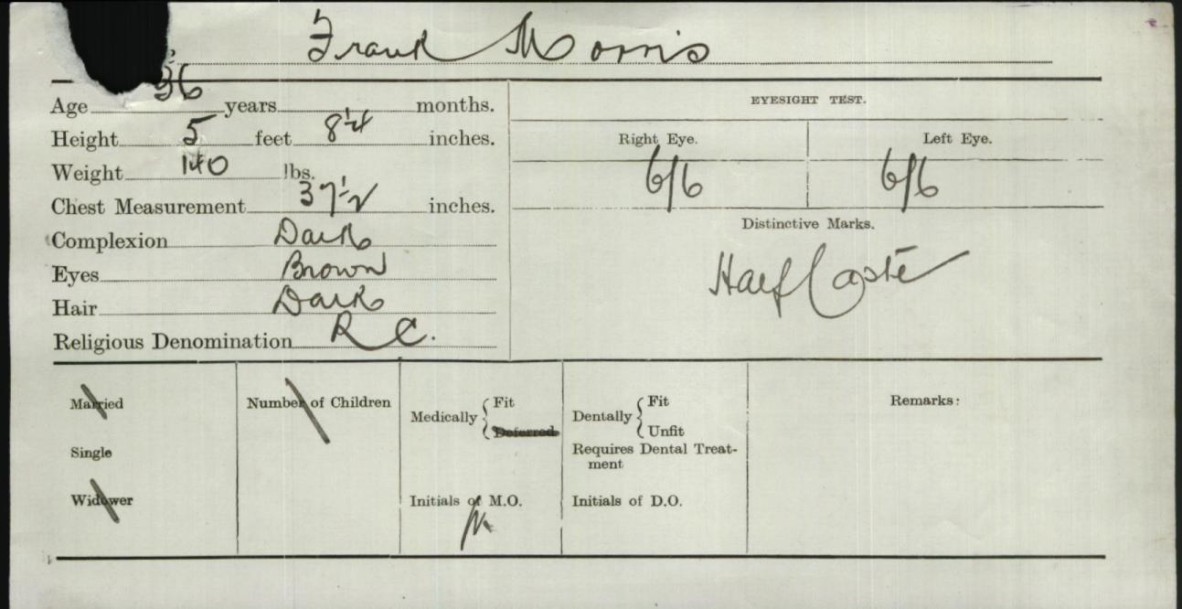 Frank Morris
Age 36 years months.
Height 5 feet 8 1/4 inches.
Weight 140 lbs.
Chest Measurement 37 1/2 inches.
Complexion Dark
Eyes Brown
Hair Dark
Religious Denomination R C.
EYESIGHT TEST.
Right Eye. Left Eye.
6/6 6/6
Distinctive Marks.
Half Caste
Married
Single
Widower
Number of Children
Medically Fit
Deferred
Initials of M.O.
Dentally Fit
Unfit
Requires Dental Treat-
ment
Initials of D.O.
Remarks: